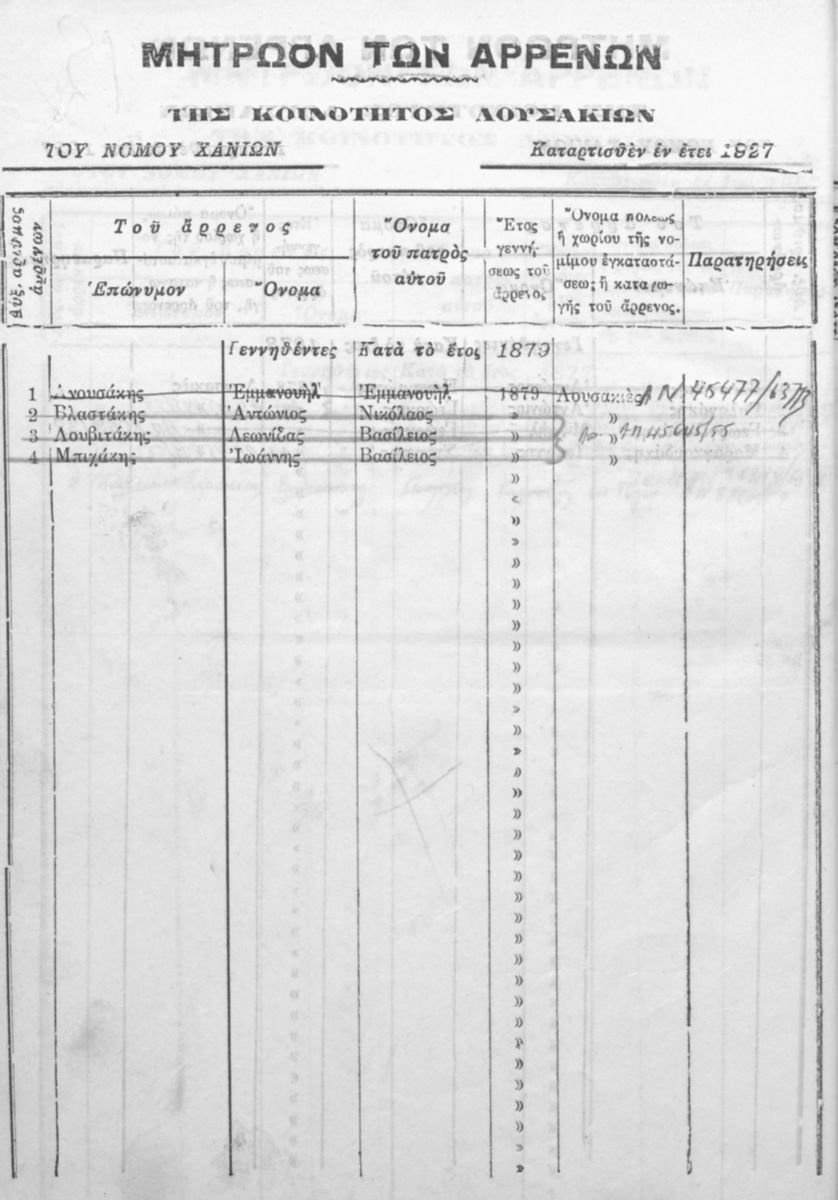 ΜΗΤΡΩΟΝ ΤΩΝ ΑΡΡΕΝΩΝ
ΤΗΣ ΚΟΙΝΟΤΗΤΟΣ ΛΟΥΣΑΚΙΩΝ
ΤΟΥ ΝΟΜΟΥ ΧΑΝΙΩΝ Καταρτισθὲν ἐν ἔτει 1927
Αὔξ. ἀριθμὸς ἀῤῥένων
Τοῦ ἄρρενος
Ἐπώνυμον Ὄνομα
Ὄνομα
τοῦ πατρὸς
αὐτοῦ
Ἔτος
γεννή-
σεως τοῦ
ἄρρενος
Ὄνομα πόλεως
ἢ χωρίου τῆς νο-
μίμου ἐγκαταστά-
σεως ἢ καταγω-
γῆς τοῦ ἄρρενος.
Παρατηρήσεις
Γεννηθέντες Κατὰ τὸ ἔτος 1879
1 Ἐμμανουὴλ Ἐμμανουὴλ 1879 Λουσακιὲς ΑΝ 45477/63
2 Βλαστάκης Ἀντώνιος Νικόλαος » »
3 Λουβιτάκης Λεωνίδας Βασίλειος » »
4 Μπιχάκης Ἰωάννης Βασίλειος » »
»
»
»
»
»
»
»
»
»
»
»
»
»
»
»
»
»
»
»
»
»
»
»
»
»
»
»
»
»
»
»
»
»
»